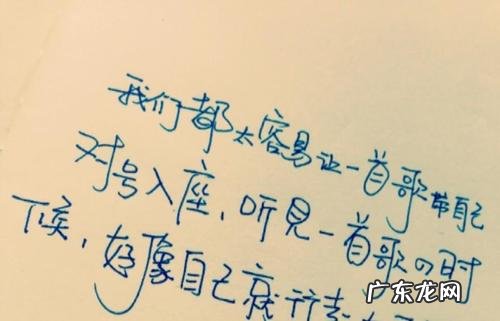 我们都太容易让一首歌带自己
对号入座,听见一首歌的时
候,好像自己就
广东龙网